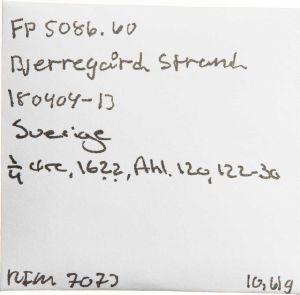 FP 5086.60
Bjerregård Strand
180404-13
Sverige
1/4 öre, 1622, Ahl. 120, 122-30
RIM 7073
10,61g